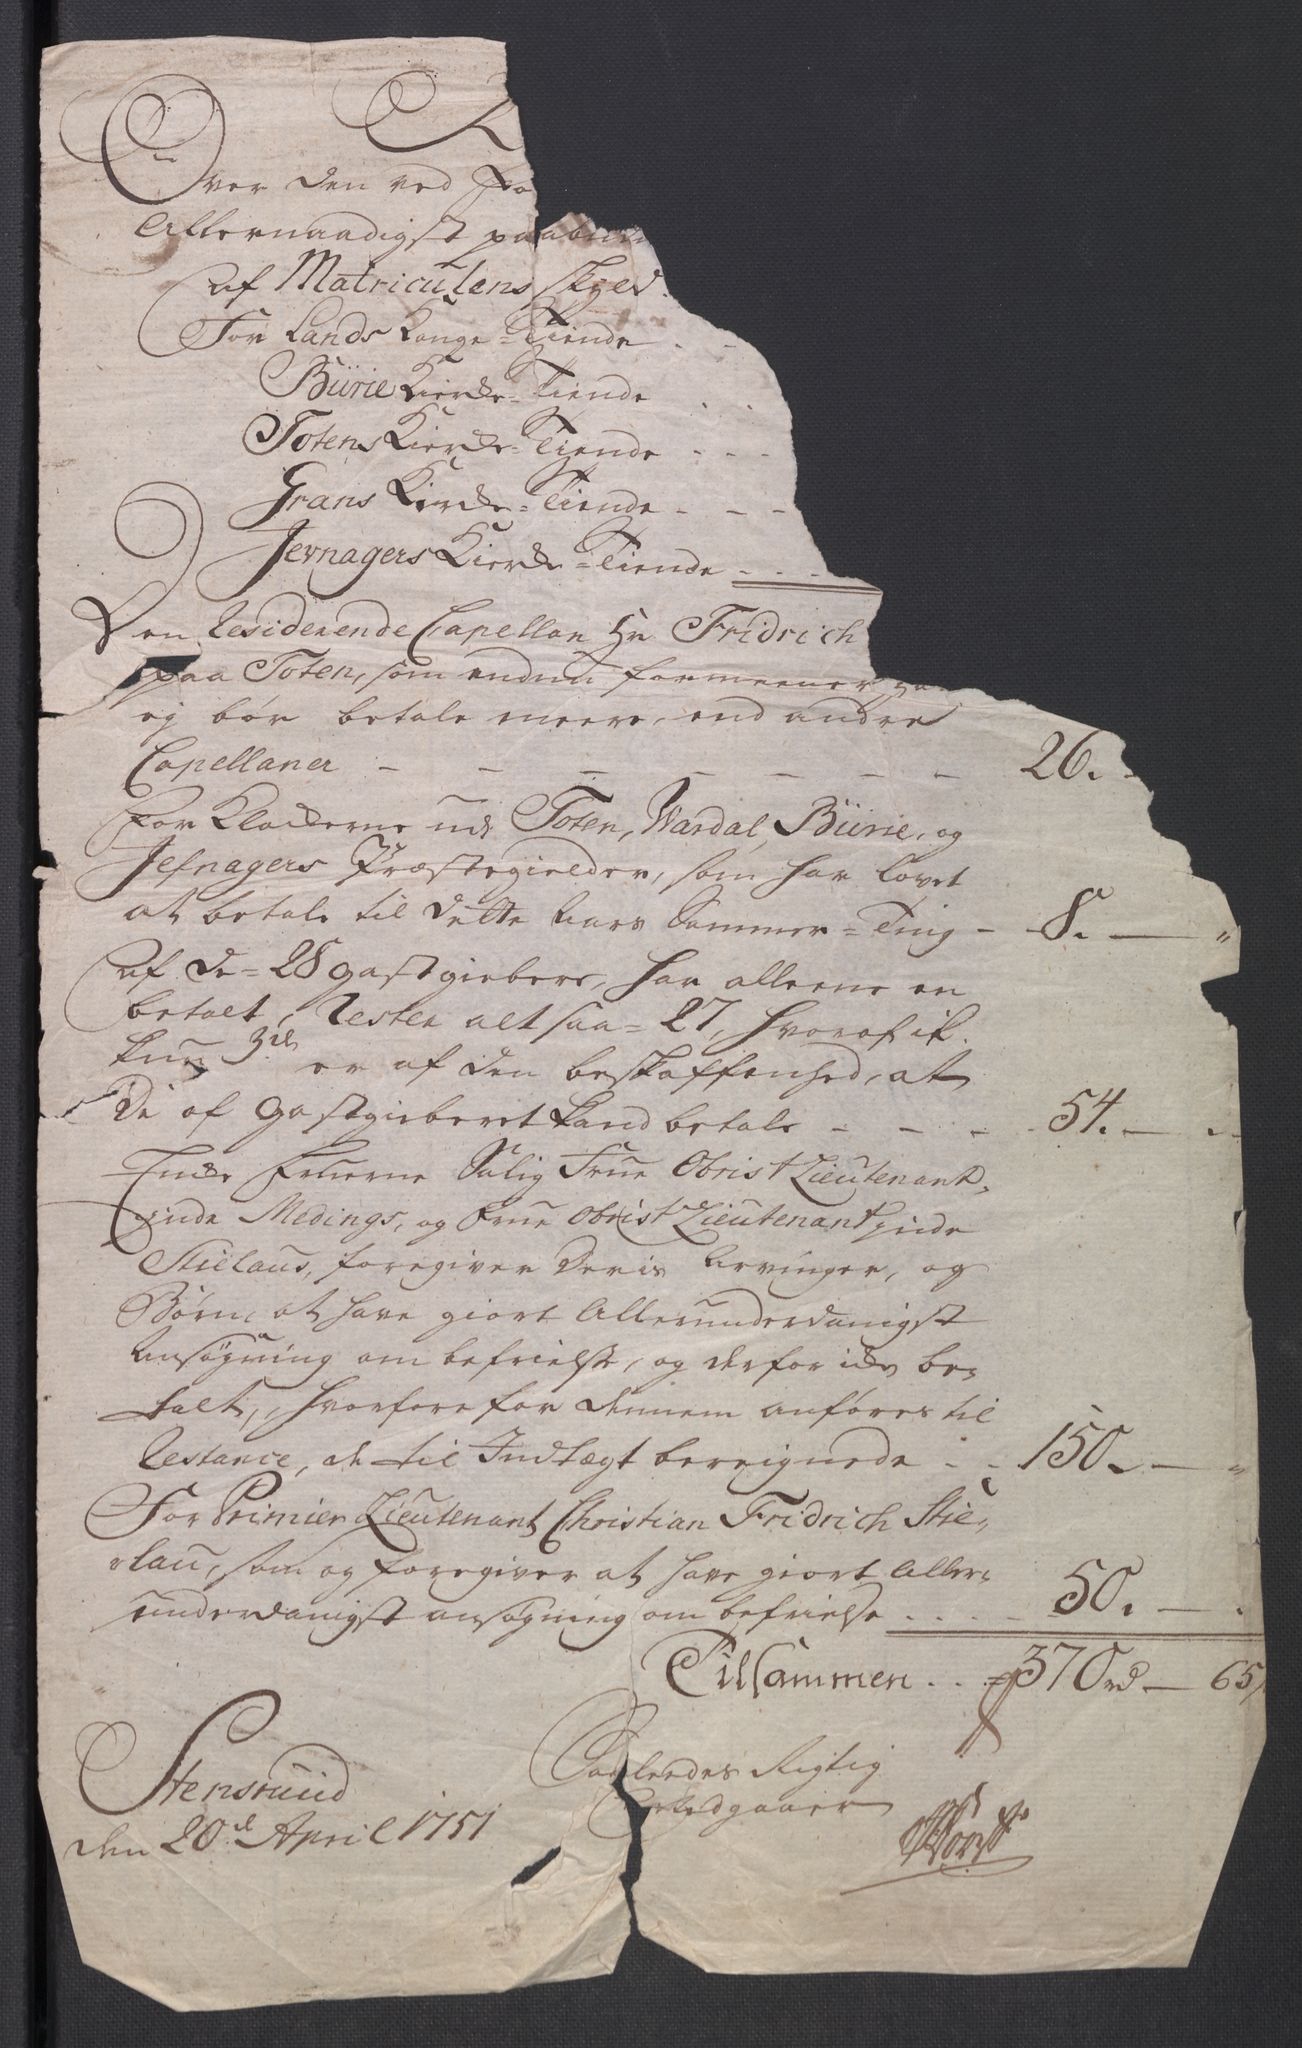 Over den ved Fo
Allernaadigst paabu
af Matriculens skyld
For Lands Konge-Tiende . -
Biirie Kierke-Tiende . .
Totens Kierke-Tiende - - -
Grans Kirke-Tiende - - -
Jevnagers Kierke-Tiende - . . .
Den Residerende Capellan Hr Fridrich
paa Toten, som endnu formeener han
ej bør betale meere, end andre
Capellaner - - - - - - - 26. -
For Klokkerne udi Toten, Wardal, Biirie, og
Jefnagers Præstegielder, som har lovet
at betale til dette Aars Sommer-Ting - 8. — "
Af de 28 gastgiebere, har alleene en
betalt, Rester alt saa 27, hvoraf ik.
kun 3de er af den beskaffenhed, at
De af gastgieberet kand betale - - - - 54. — -
Encke Fruerne Salig Frue Obrist Lieutenant-
inde Medings, og Frue Obrist Lieutenantinde
Stielaus, foregiver deris Arvinger, og
Børn, at have giort Allerunderdanigst
Ansøgning om befrielse, og derfor icke be-
talt, hvorfore for dennem anføres til
Restance, de til Indtægt bereignede - - 150. — "
For Primier Lieutenant Christian Fridrich Stie-
lau, som og foregiver at have giort Aller-
underdanigst ansøgning om befrielse . . . . 50. — .
Tilsammen . . . 370 rd — 65
Stensruud
den 20de April 1751
Saaledes Rigtig